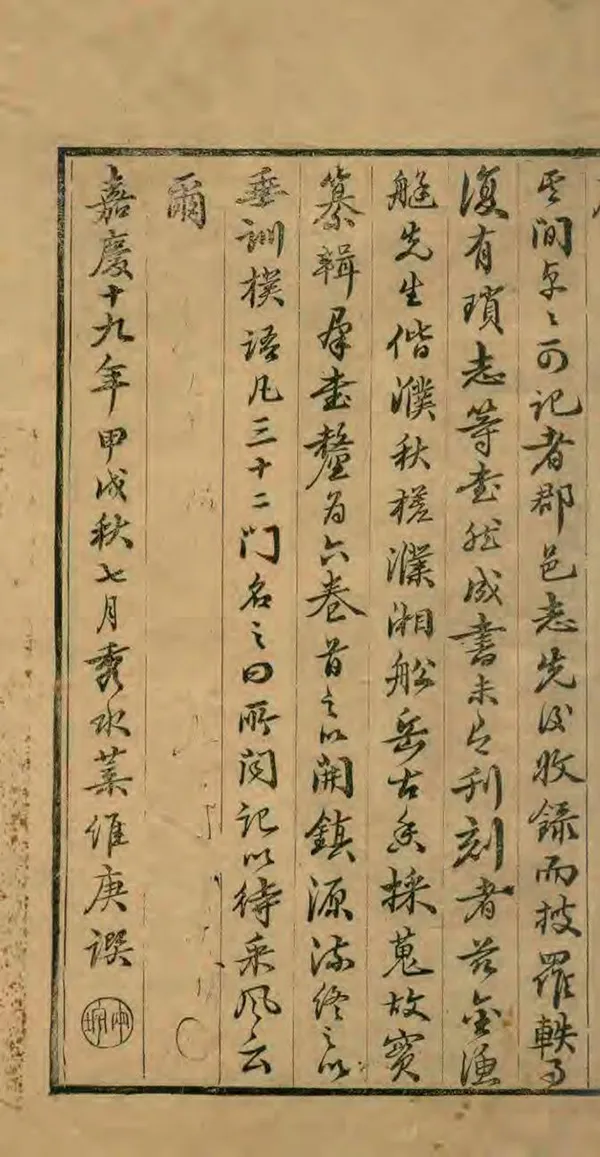 其間卓〻可記者郡邑志先後收錄而披羅軼事
復有瑣志等書然成書未及刊刻者茲金漁
艇先生偕濮秋槎濮湘船岳古香採蒐故實
纂輯群書釐為六卷首之以開鎮源流終之以
垂訓樸語凡三十二門名之曰所聞記以待采風云
爾
嘉慶十九年甲戌秋七月秀水葉維庚譔